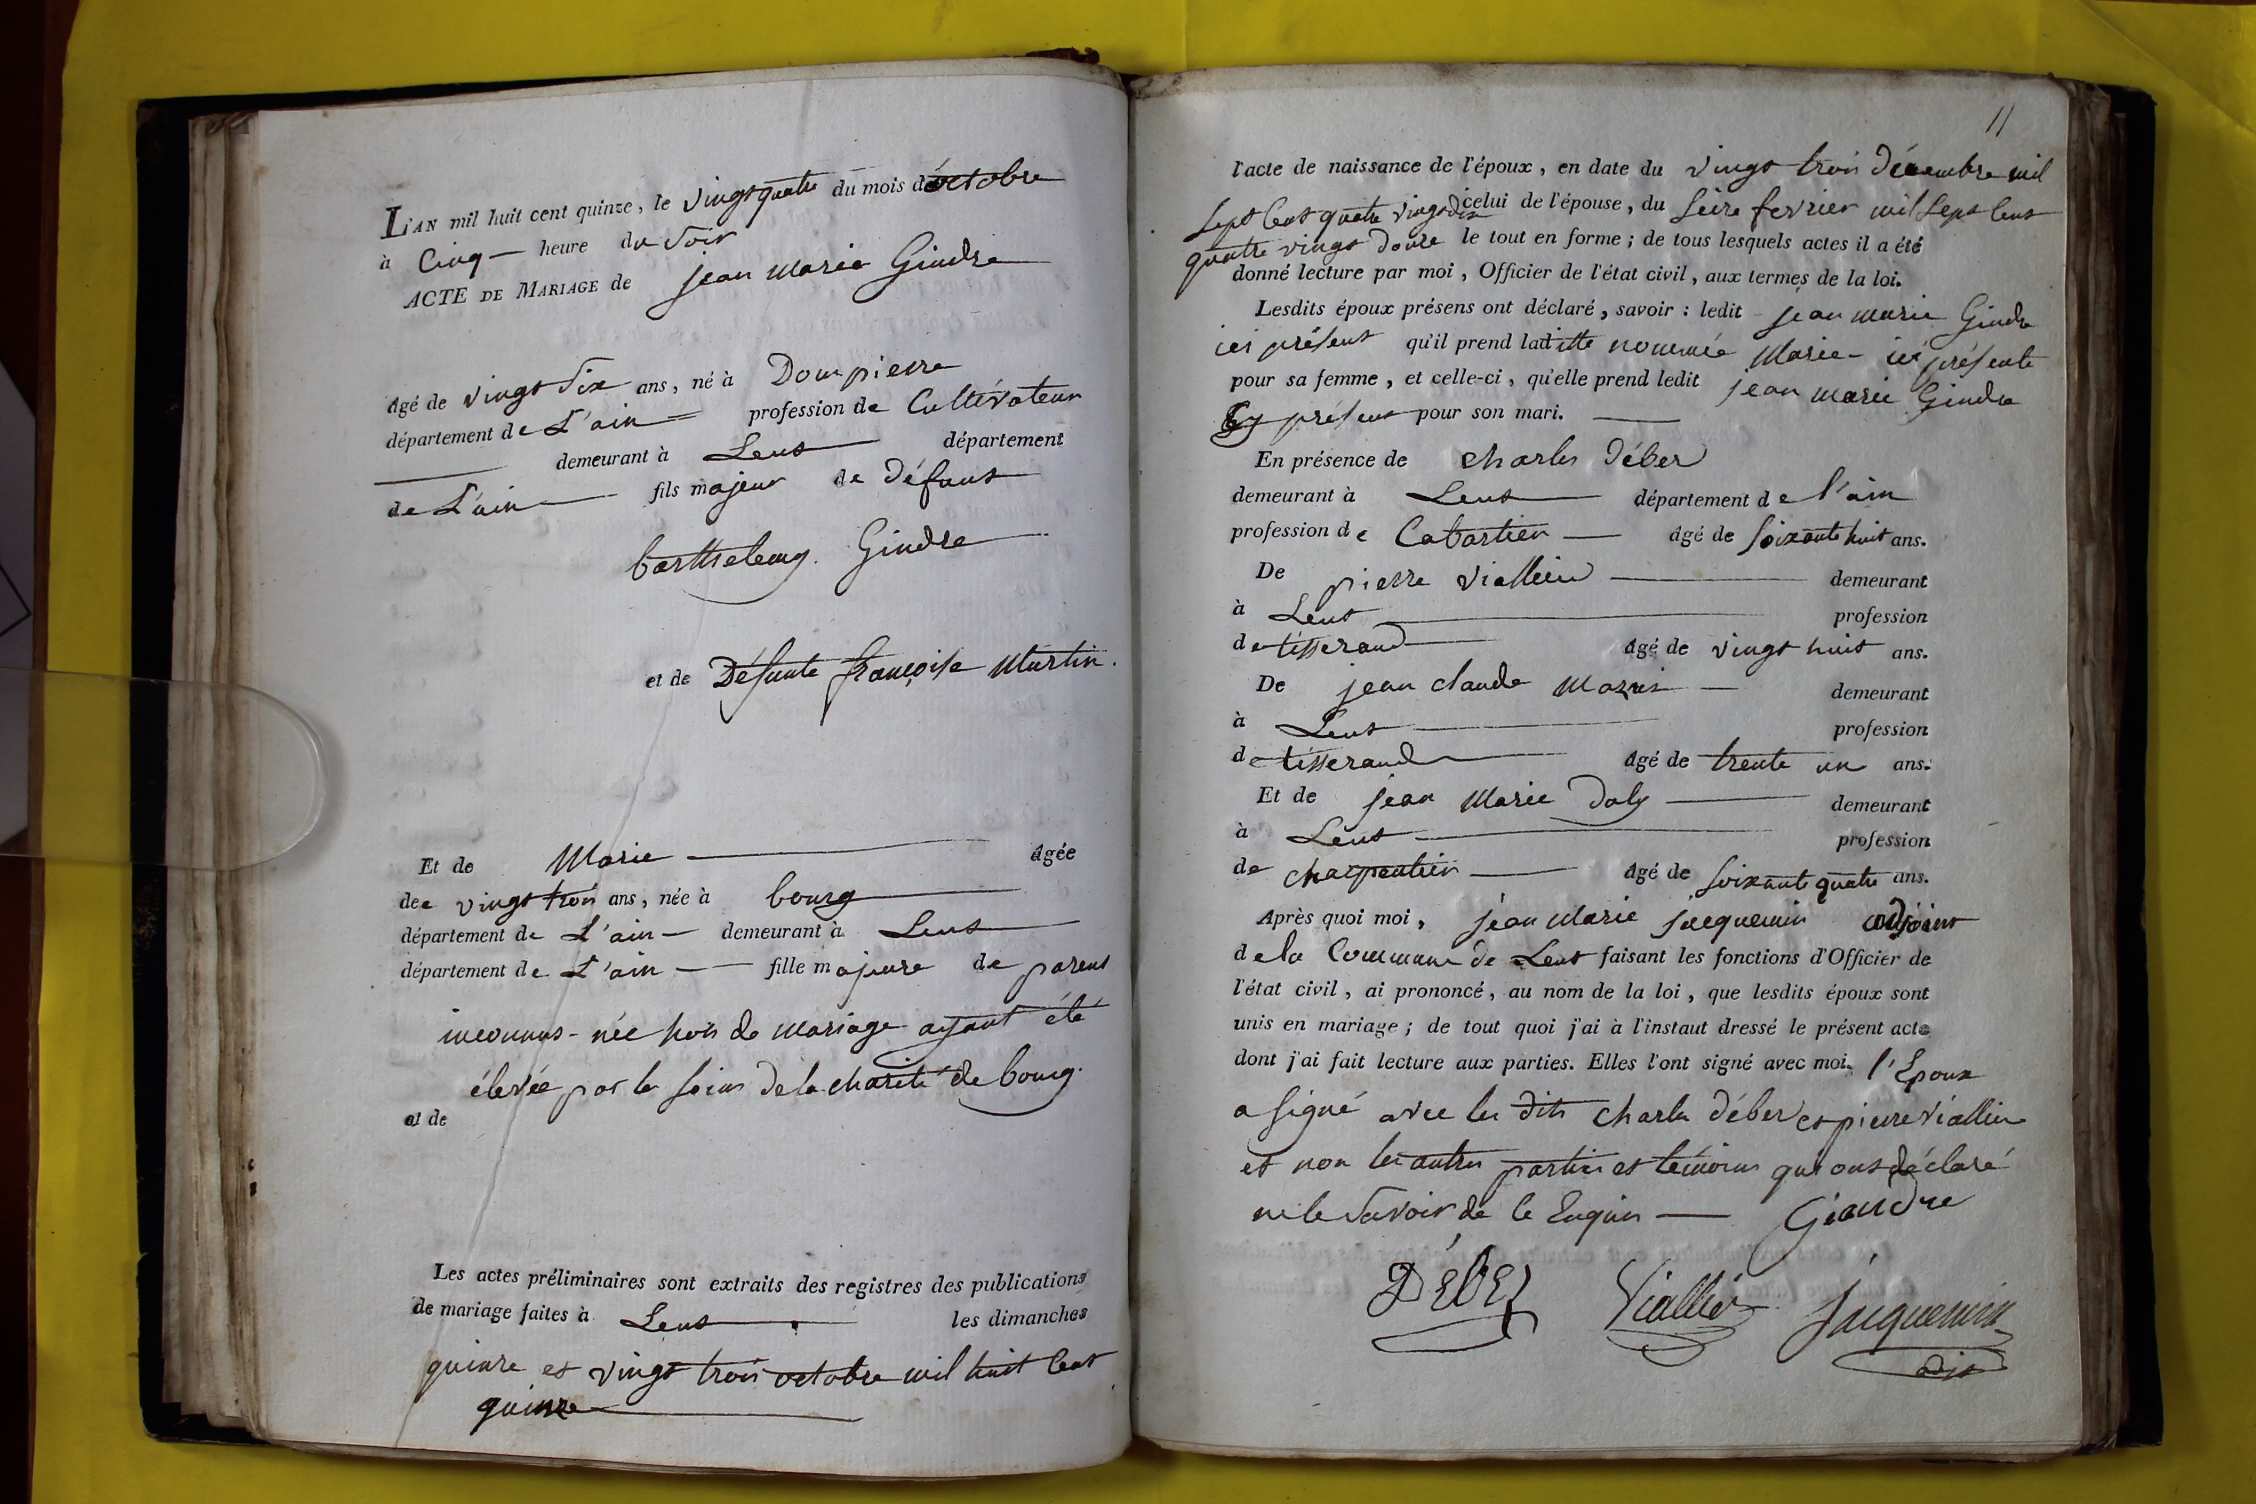 L'AN mil huit cent quinze, le vingt quatre du mois d'octobre
à Cinq heure du Soir
ACTE DE MARIAGE de jean marie Gindre
âgé de vingt Six ans, né à Dompierre
département de L'ain profession de Cultivateur
demeurant à Lent département
de L'ain fils majeur de Défunt
barthelemy Gindre
et de Défunte françoise Martin.
Et de Marie âgée
dee vingt trois ans, née à bourg
département de L'ain demeurant à Lent
département de L'ain fille majeure de parens
inconnus - née hors de mariage ayant été
élevée par les soins de la charité de bourg.
et de
Les actes préliminaires sont extraits des registres des publications
de mariage faites à Lent les dimanches
quinze et vingt trois octobre mil huit Cent
quinze
11
l'acte de naissance de l'époux, en date du vingt trois décembre mil
Sept Cent quatre vingt dix celui de l'épouse, du Seize fevrier mil Sept Cent
quatre vingt douze le tout en forme; de tous lesquels actes il a été
donné lecture par moi, Officier de l'état civil, aux termes de la loi.
Lesdits époux présens ont déclaré, savoir: ledit jean marie Gindre
ici présent qu'il prend laditte nommée Marie - ici présente
pour sa femme, et celle-ci, qu'elle prend ledit jean marie Gindre
Cy présent pour son mari.
En présence de charles Déber
demeurant à Lent département de l'ain
profession de Cabartier âgé de Soixante huit ans.
De pierre viallier demeurant
à Lent profession
de tisserand âgé de vingt huit ans.
De jean claude demeurant
à Lent profession
de tisserand âgé de trente un ans.
Et de jean Marie Doly demeurant
à Lent profession
de charpentier âgé de Soixante quatre ans.
Après quoi moi, jean Marie jacquemin adjoint
de la Commune de Lent faisant les fonctions d'Officier de
l'état civil, ai prononcé, au nom de la loi, que lesdits époux sont
unis en mariage; de tout quoi j'ai à l'instaut dressé le présent acte
dont j'ai fait lecture aux parties. Elles l'ont signé avec moi. l'Epoux
a signé avec les dits charles Déber et pierre viallier
et non les autres parties et témoins qui ont déclaré
ne le Savoir de ce Enquis Giandre
DÉBER Viallier jacquemin
adjt